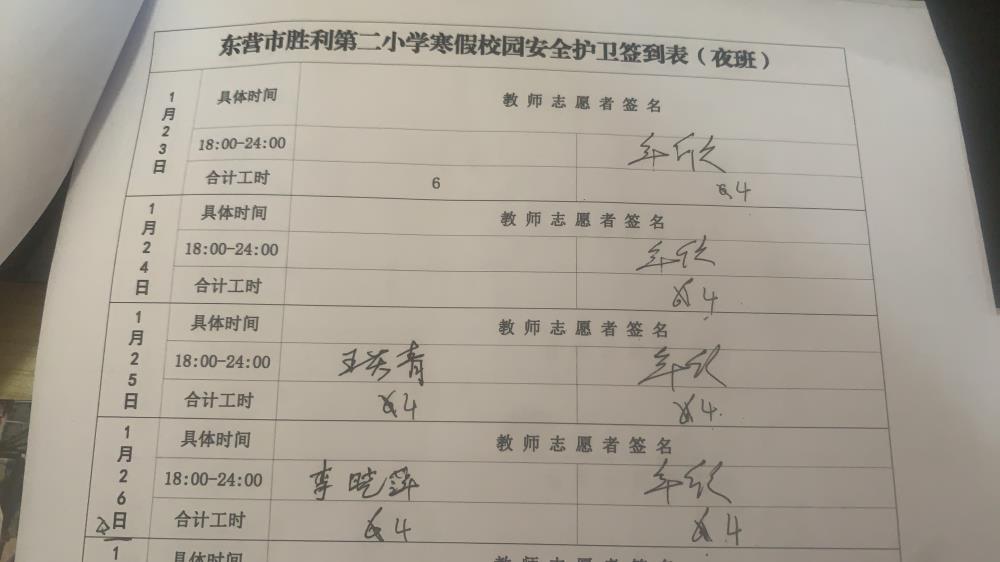 东营市胜利第二小学寒假校园安全护卫签到表（夜班）
1月23日
具体时间 教师志愿者签名
18:00-24:00
合计工时 6 4
1月24日
具体时间 教师志愿者签名
18:00-24:00
合计工时 4
1月25日
具体时间 教师志愿者签名
18:00-24:00 青
合计工时 4 4
1月26日
具体时间 教师志愿者签名
18:00-24:00 李晓萍
合计工时 4 4
1
具体时间 教师志愿者签名